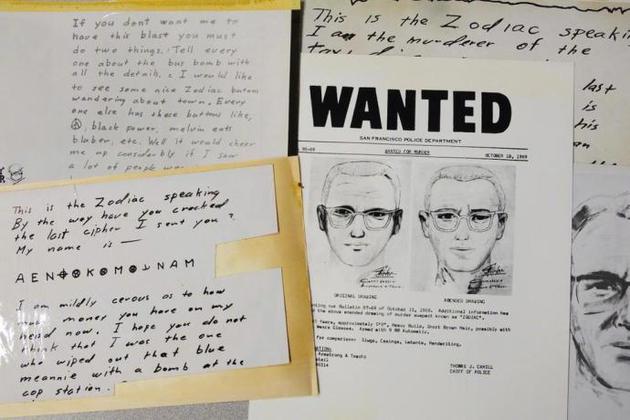 If you dont want me to
have this blast you must
do two things. Tell every
one about the bus bomb with
all the details. I would like
to see some nice Zodiac butons
wandering about town. Every
one else has these buttons like,
black power, melvin eats
bluber, etc. Well it would cheer
me up considerably if I saw
a lot of people
This is the Zodiac speaking
By the way have you cracked
the last cipher I sent you?
My name is —
AEN⊕⊗K⊗M⊗ NAM
I am mildly cerous as to how
much money you have on my
head now. I hope you do not
think that I was the one
who wiped out that blue
meannie with a bomb at the
cop station.
This is the Zodiac speaking
I am the murderer of the
last
is
his
WANTED
SAN FRANCISCO POLICE DEPARTMENT
WANTED FOR MURDER OCTOBER 18, 1969
ORIGINAL DRAWING AMENDED DRAWING
Bulletin 87-69 of October 13, 1969. Additional information has
the above amended drawing of murder suspect known as "ZODIAC".
Years, approximately 5'8", Heavy Build, Short Brown Hair, possibly with
Glasses. Armed with 9 MM Automatic.
for comparison: Slugs, Casings, Latents, Handwriting.
Armstrong & Toschi
THOMAS J. CAHILL
CHIEF OF POLICE